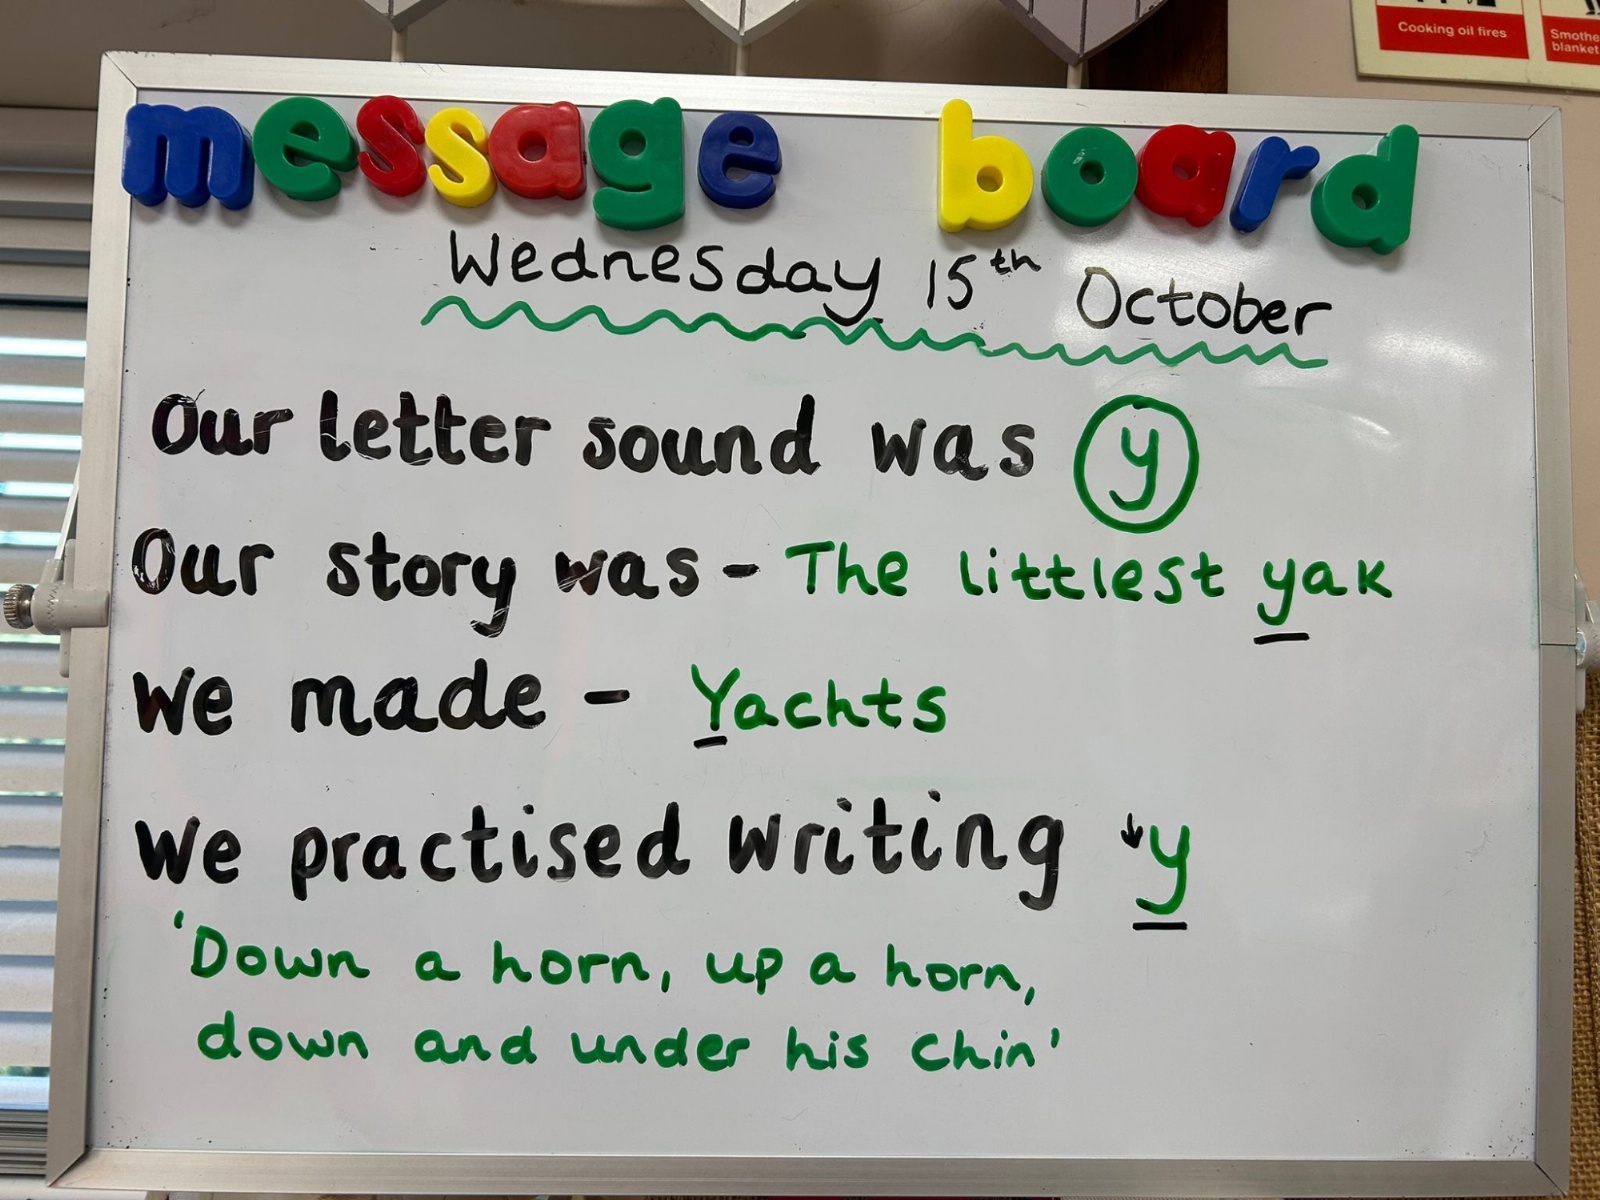 Cooking oil fires
Smothe
blanket
message board
Wednesday 15th October
Our letter sound was y
Our story was - The littlest yak
We made - Yachts
We practised writing y
'Down a horn, up a horn,
down and under his chin'